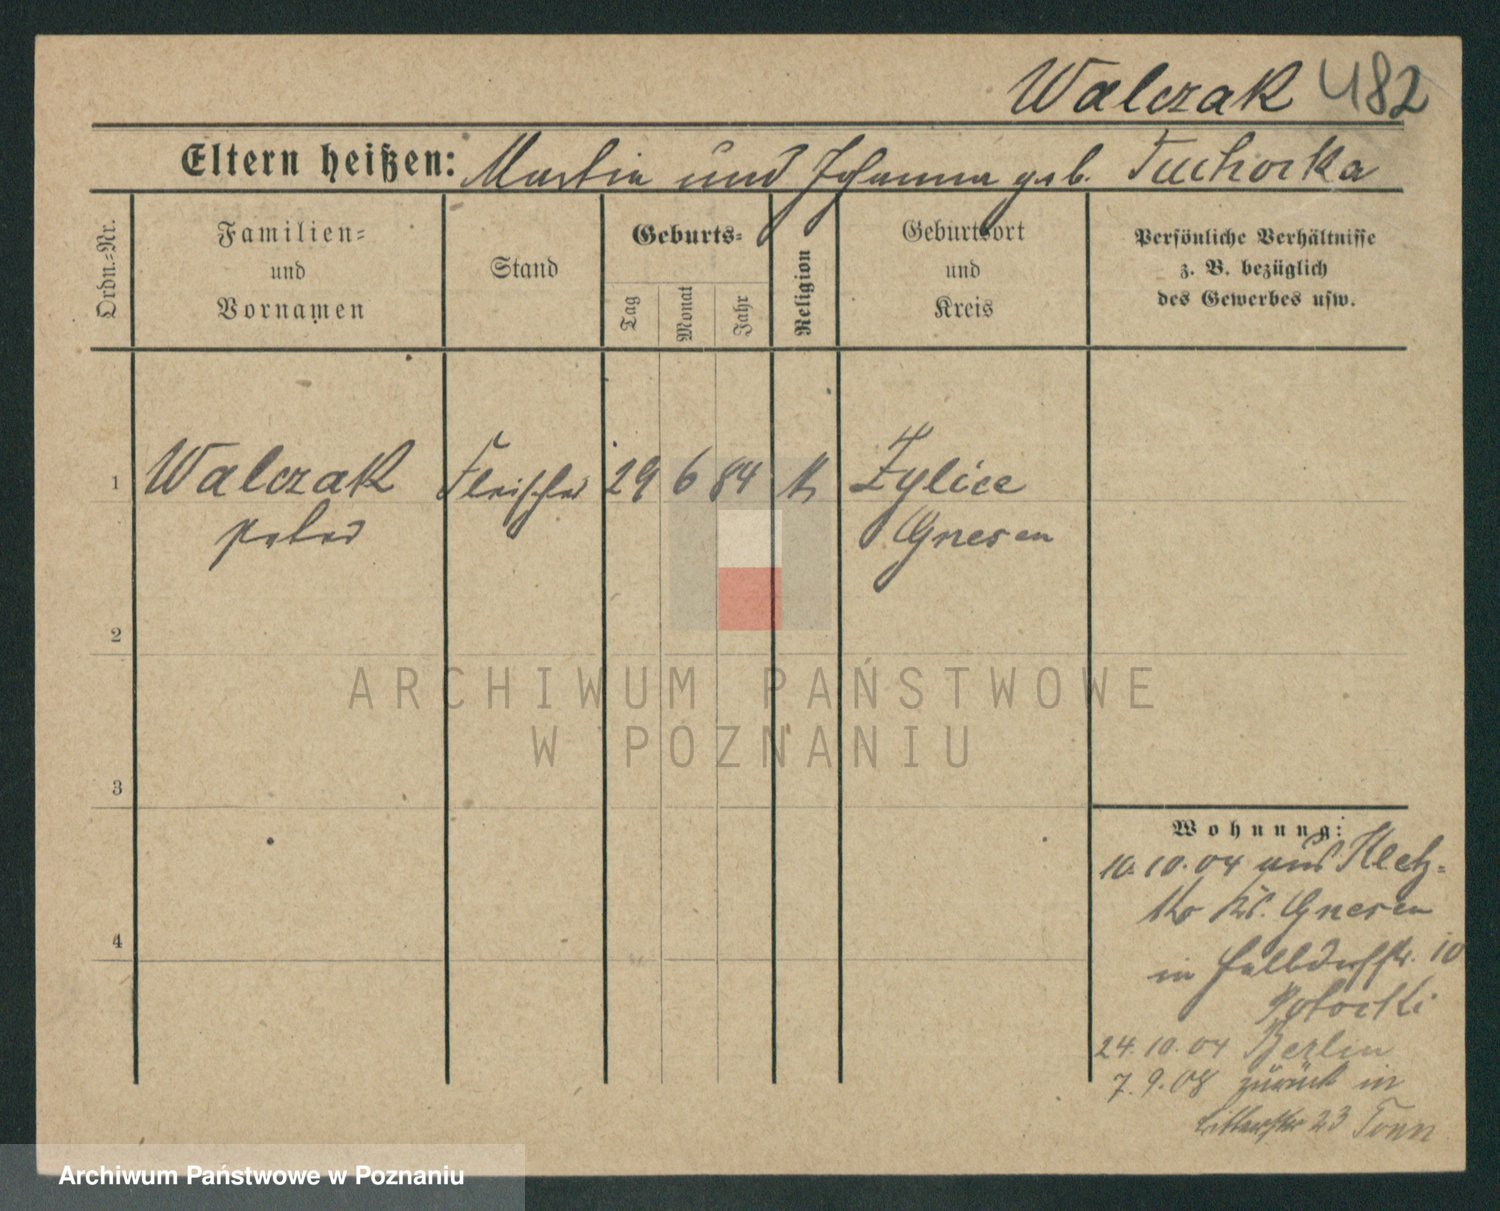 Walczak 482
Eltern heißen: Martin und Johanna geb. Tuchocka
Ordn.-Nr.
Familien-
und
Vornamen
Stand
Geburts-
Tag
Monat
Jahr
Religion
Geburtsort
und
Kreis
Persönliche Verhältnisse
z. B. bezüglich
des Gewerbes usw.
1 Walczak Fleischer 29 6 84 k Żylice
Peter Gnesen
2
3
4
Wohnung:
10.10.04 aus Kletz-
ko Kr. Gnesen
in Halbdorfstr. 10
Potocki
24.10.04 Berlin
7.9.08 zurück in
23 Tonn
ARCHIWUM PAŃSTWOWE
W POZNANIU
Archiwum Państwowe w Poznaniu